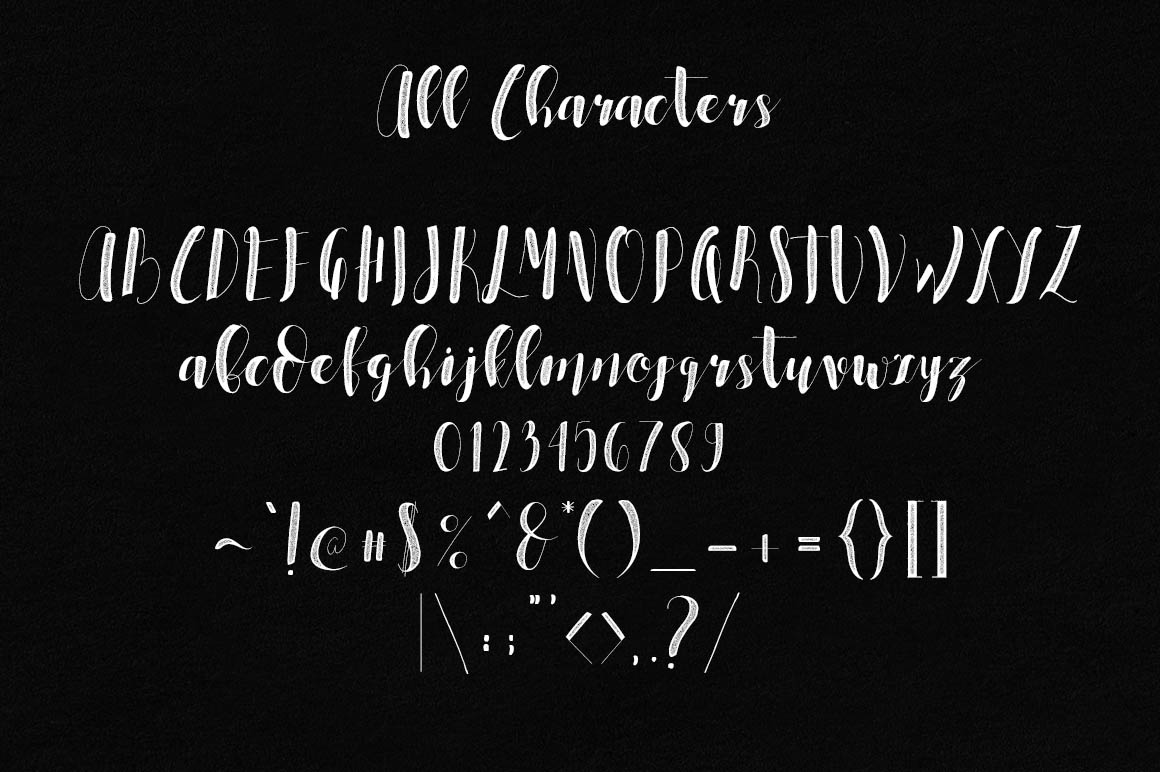 All Characters
ABCDEFGHIJKLMNOPQRSTUVWXYZ
abcdefghijklmnopqrstuvwxyz
0123456789
~`!@#$%^&*()_-+={}[]
|\:;"'<>,.?/